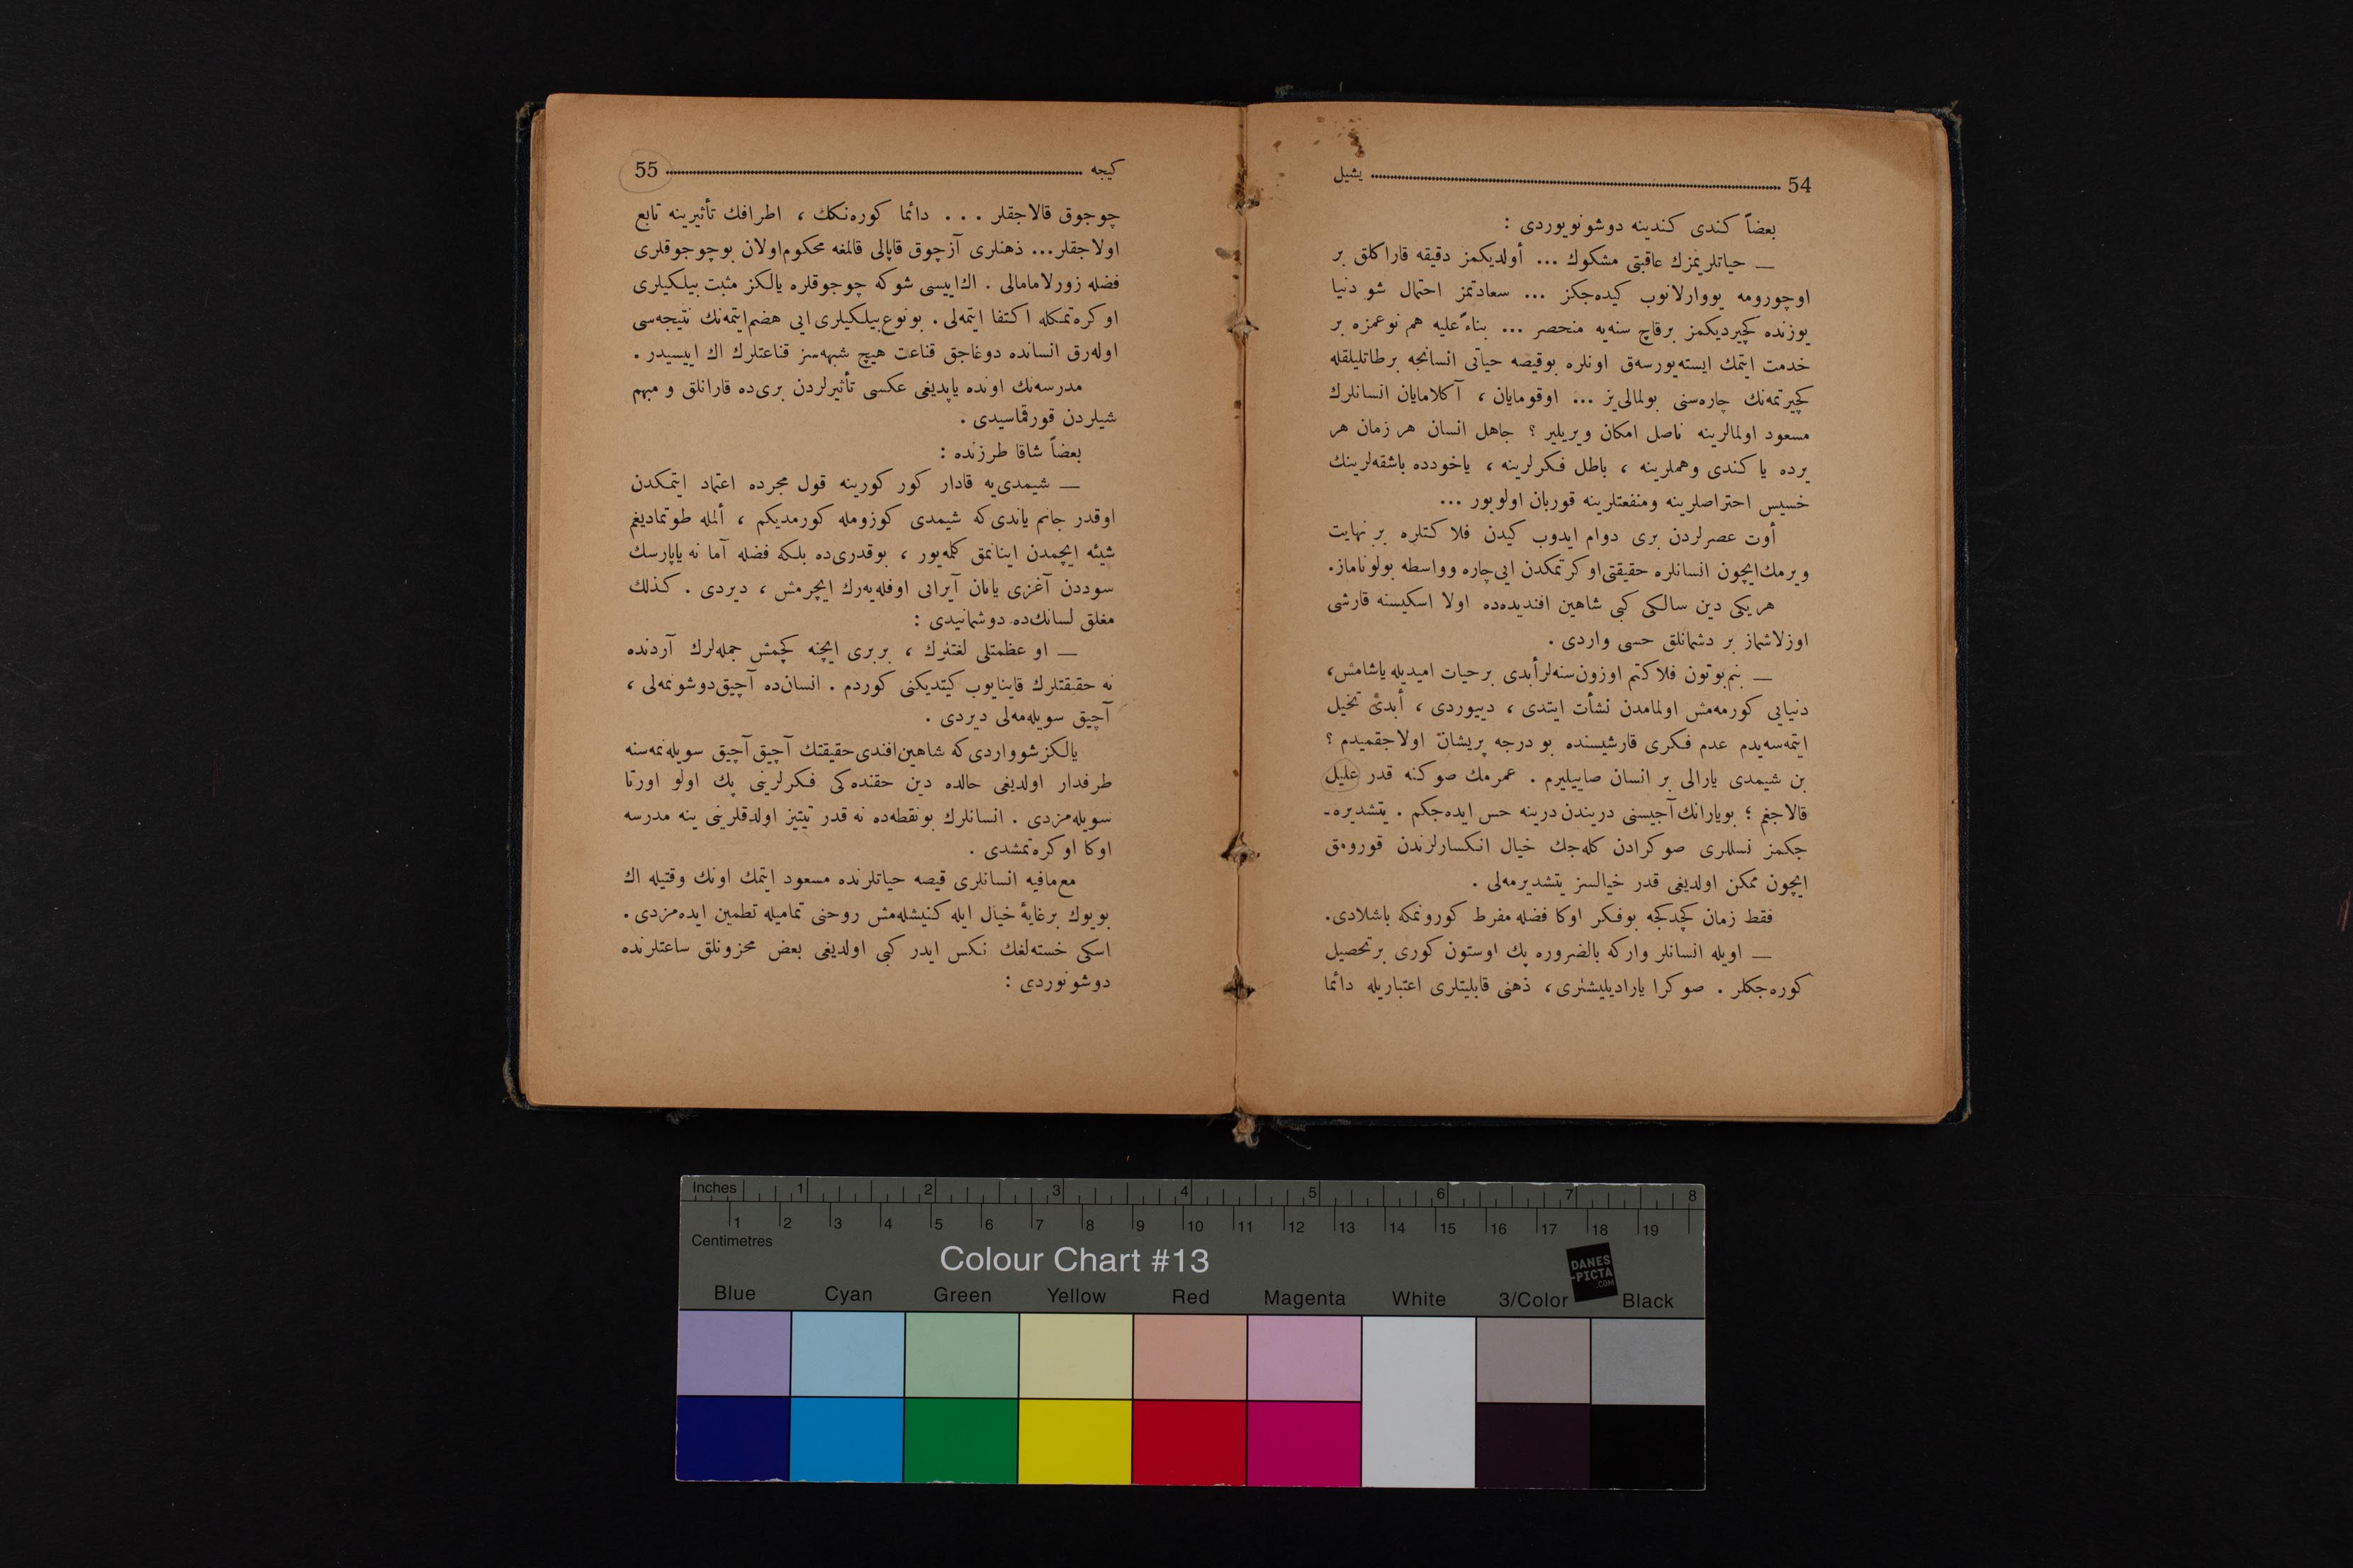 54 يشيل
بعضاً كندى كندينه دوشونويوردى :
— حياتلريمزك عاقبتى مشكوك ... أولديكمز دقيقه قاراكلق بر
اوچورومه يووارلانوب كيده‌جكز ... سعادتمز احتمال شو دنيا
يوزنده كچيرديكمز برقاچ سنه‌يه منحصر ... بناءً عليه هم نوعمزه بر
خدمت ايتمك ايسته‌يورسه‌ق اونلره بوقيصه حياتى انسانجه برطاتليلقله
كچيرتمه‌نك چاره‌سنى بولمالى‌يز ... اوقومايان ، آكلامايان انسانلرك
مسعود اولمالرينه ناصل امكان ويريلير ؟ جاهل انسان هر زمان هر
يرده يا كندى وهملرينه ، باطل فكرلرينه ، ياخودده باشقه‌لرينك
خسيس احتراصلرينه ومنفعتلرينه قوربان اولويور ...
أوت عصرلردن برى دوام ايدوب كيدن فلاكتلره بر نهايت
ويرمك‌ايچون انسانلره حقيقتى‌اوكرتمكدن ايى‌چاره وواسطه بولوناماز.
هر يكى دين سالكى كبى شاهين افنديده‌ده اولا اسكيسنه قارشى
اوزلاشماز بر دشمانلق حسى واردى .
— بنم‌بوتون فلاكتم اوزون‌سنه‌لرأبدى برحيات اميديله ياشامش،
دنيايى كورمه‌مش اولمامدن نشأت ايتدى ، دييوردى ، أبدئ تخيل
ايتمه‌سه‌يدم عدم فكرى قارشيسنده بو درجه پريشان اولاجقميدم ؟
بن شيمدى يارالى بر انسان صاييليرم . عمرمك صوكنه قدر عليل
قالاجغم ؛ بويارانك آجيسنى دريندن درينه حس ايده‌جكم . يتشديره‌-
جكمز نسللرى صوكرادن كله‌جك خيال انكسارلرندن قورومق
ايچون ممكن اولديغى قدر خيالسز يتشديرمه‌لى .
فقط زمان كچدكجه بوفكر اوكا فضله مفرط كورونمكه باشلادى.
— اويله انسانلر واركه بالضروره پك اوستون كورى برتحصيل
كوره‌جكلر . صوكرا ياراديليشلرى، ذهنى قابليتلرى اعتباريله دائما
كيجه 55
چوجوق قالاجقلر . . . دائما كوره‌نكك ، اطرافك تأثيرينه تابع
اولاجقلر... ذهنلرى آزچوق قاپالى قالمغه محكوم‌اولان بوچوجوقلرى
فضله زورلامامالى . اك‌اييسى شوكه چوجوقلره يالكز مثبت بيلكيلرى
اوكره‌تمكله اكتفا ايتمه‌لى . بونوع‌بيلكيلرى ايى هضم‌ايتمه‌نك نتيجه‌سى
اوله‌رق انسانده دوغاجق قناعت هيچ شبهه‌سز قناعتلرك اك اييسيدر .
مدرسه‌نك اونده ياپديغى عكسى تأثيرلردن برى‌ده قارانلق و مبهم
شيلردن قورقماسيدى .
بعضاً شاقا طرزنده :
— شيمدى‌يه قادار كور كورينه قول مجرده اعتماد ايتمكدن
اوقدر جانم ياندى‌كه شيمدى كوزومله كورمديكم ، ألمله طوتماديغم
شيئه ايچمدن اينانمق كله‌يور ، بوقدرى‌ده بلكه فضله آما نه ياپارسك
سوددن آغزى يانان آيرانى اوفله‌يه‌رك ايچرمش ، ديردى . كذلك
مغلق لسانك‌ده دوشمانيدى :
— او عظمتلى لغتلرك ، بربرى ايچنه كچمش جمله‌لرك آردنده
نه حقيقتلرك قاينايوب كيتديكنى كوردم . انسان‌ده آچيق‌دوشونمه‌لى ،
آچيق سويله‌مه‌لى ديردى .
يالكز شوواردى‌كه شاهين‌افندى‌حقيقتك آچيق‌آچيق سويله‌نمه‌سنه
طرفدار اولديغى حالده دين حقنده‌كى فكرلرينى پك اولو اورتا
سويله‌مزدى . انسانلرك بونقطه‌ده نه قدر تيتيز اولدقلرينى ينه مدرسه
اوكا اوكره‌تمشدى .
مع‌مافيه انسانلرى قيصه حياتلرنده مسعود ايتمك اونك وقتيله اك
بويوك برغايهٔ خيال ايله كنيشله‌مش روحنى تماميله تطمين ايده‌مزدى .
اسكى خسته‌لغك نكس ايدر كبى اولديغى بعض محزونلق ساعتلرنده
دوشونوردى :
Inches 1 2 3 4 5 6 7 8
1 2 3 4 5 6 7 8 9 10 11 12 13 14 15 16 17 18 19
Centimetres
Colour Chart #13
DANES
-PICTA
.COM
Blue Cyan Green Yellow Red Magenta White 3/Color Black